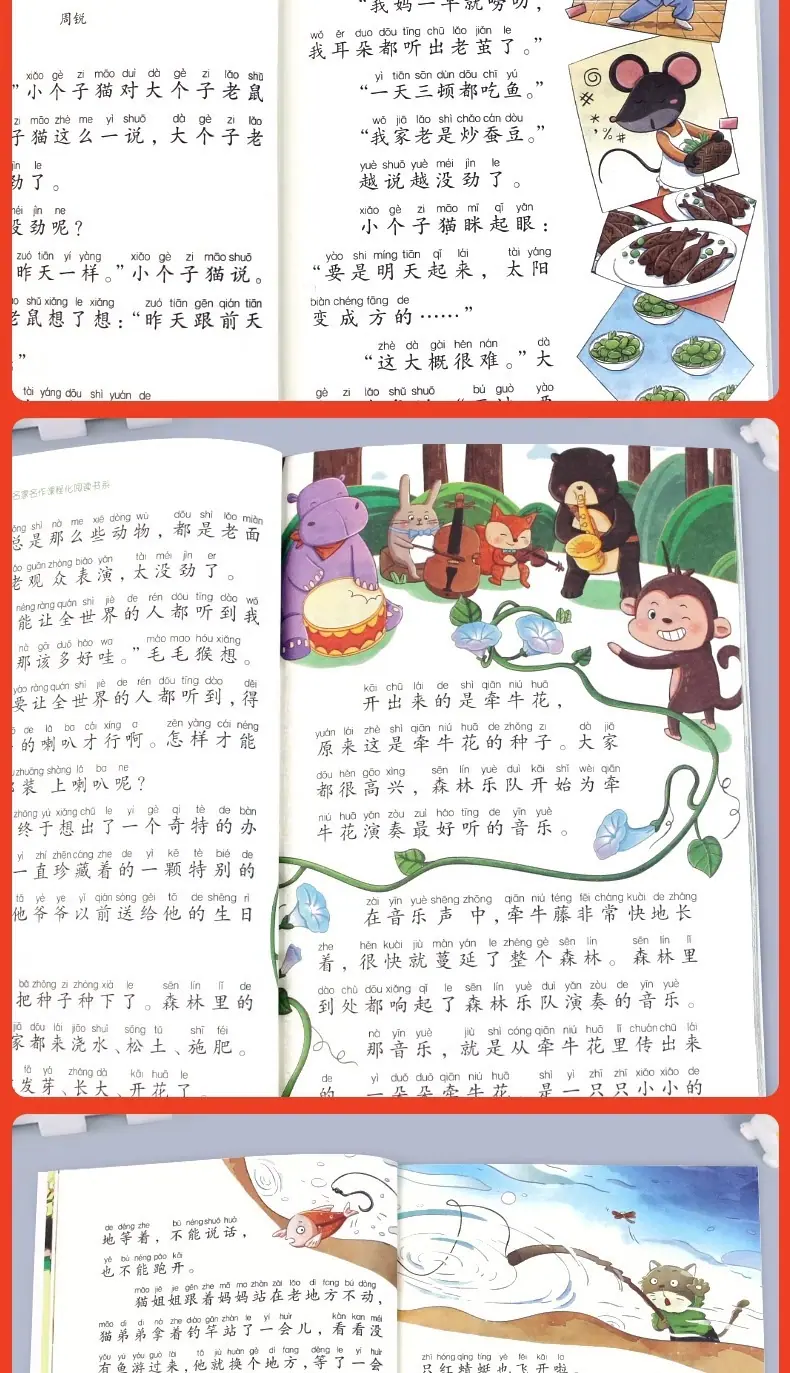 周锐
xiǎo gè zi māo duì dà gè zi lǎo shǔ
”小个子猫对大个子老鼠
zi māo zhè me yì shuō dà gè zi lǎo
子猫这么一说，大个子老
jìn le
劲了。
méi jìn ne
没劲呢？
zuó tiān yí yàng xiǎo gè zi māo shuō
昨天一样。”小个子猫说。
lǎo shǔ xiǎng le xiǎng zuó tiān gēn qián tiān
老鼠想了想：“昨天跟前天
”
tài yáng dōu shì yuán de
“我妈一早就唠叨，
wǒ ěr duo dōu tīng chū lǎo jiǎn le
我耳朵都听出老茧了。”
yì tiān sān dùn dōu chī yú
“一天三顿都吃鱼。”
wǒ jiā lǎo shì chǎo cán dòu
“我家老是炒蚕豆。”
yuè shuō yuè méi jìn le
越说越没劲了。
xiǎo gè zi māo mī qǐ yǎn
小个子猫眯起眼：
yào shi míng tiān qǐ lái tài yáng
“要是明天起来，太阳
biàn chéng fāng de
变成方的……”
zhè dà gài hěn nán dà
“这大概很难。”大
gè zi lǎo shǔ shuō bú guò yào
名家名作课程化阅读书系
zǒng shì nà me xiē dòng wù dōu shì lǎo miàn
总是那么些动物，都是老面
lǎo guān zhòng biǎo yǎn tài méi jìn er
老观众表演，太没劲了。
néng ràng quán shì jiè de rén dōu tīng dào wǒ
能让全世界的人都听到我
nà gāi duō hǎo wa máo mao hóu xiǎng
那该多好哇。”毛毛猴想。
yào ràng quán shì jiè de rén dōu tīng dào děi
要让全世界的人都听到，得
de lǎ ba cái xíng a zěn yàng cái néng
的喇叭才行啊。怎样才能
zhuāng shàng lǎ ba ne
装上喇叭呢？
zhōng yú xiǎng chū le yí gè qí tè de bàn
终于想出了一个奇特的办
yì zhí zhēn cáng zhe de yì kē tè bié de
一直珍藏着的一颗特别的
tā yé ye yǐ qián sòng gěi tā de shēng rì
他爷爷以前送给他的生日
bǎ zhǒng zi zhòng xià le sēn lín lǐ de
把种子种下了。森林里的
jiā dōu lái jiāo shuǐ sōng tǔ shī féi
家都来浇水、松土、施肥。
fā yá zhǎng dà kāi huā le
发芽、长大、开花了。
kāi chū lái de shì qiān niú huā
开出来的是牵牛花，
yuán lái zhè shì qiān niú huā de zhǒng zi dà jiā
原来这是牵牛花的种子。大家
dōu hěn gāo xìng sēn lín yuè duì kāi shǐ wèi qiān
都很高兴，森林乐队开始为牵
niú huā yǎn zòu zuì hǎo tīng de yīn yuè
牛花演奏最好听的音乐。
zài yīn yuè shēng zhōng qiān niú téng fēi cháng kuài de zhǎng
在音乐声中，牵牛藤非常快地长
zhe hěn kuài jiù màn yán le zhěng gè sēn lín sēn lín lǐ
着，很快就蔓延了整个森林。森林里
dào chù dōu xiǎng qǐ le sēn lín yuè duì yǎn zòu de yīn yuè
到处都响起了森林乐队演奏的音乐。
nà yīn yuè jiù shì cóng qiān niú huā lǐ chuán chū lái
那音乐，就是从牵牛花里传出来
de yì duǒ duǒ qiān niú huā shì yì zhī zhī xiǎo xiǎo de
的 一朵朵牵牛花，是一只只小小的
de děng zhe bù néng shuō huà
地等着，不能说话，
yě bù néng pǎo kāi
也不能跑开。
māo jiě jie gēn zhe mā ma zhàn zài lǎo dì fang bú dòng
猫姐姐跟着妈妈站在老地方不动，
māo dì di ná zhe diào gān zhàn le yí huìr kàn kan méi
猫弟弟拿着钓竿站了一会儿，看看没
yǒu yú yóu guò lái tā jiù huàn gè dì fang děng le yí huì
有鱼游过来，他就换个地方，等了一会
zhī hóng qīng tíng yě fēi kāi la
只红蜻蜓也飞开啦。